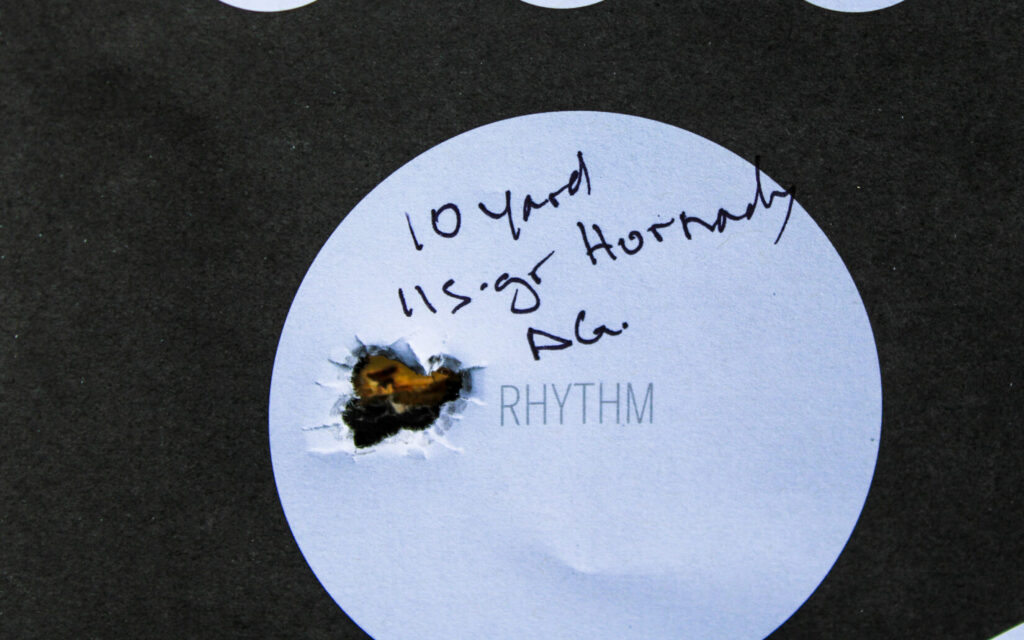 10 yard
115-gr Hornady
AG.
RHYTHM